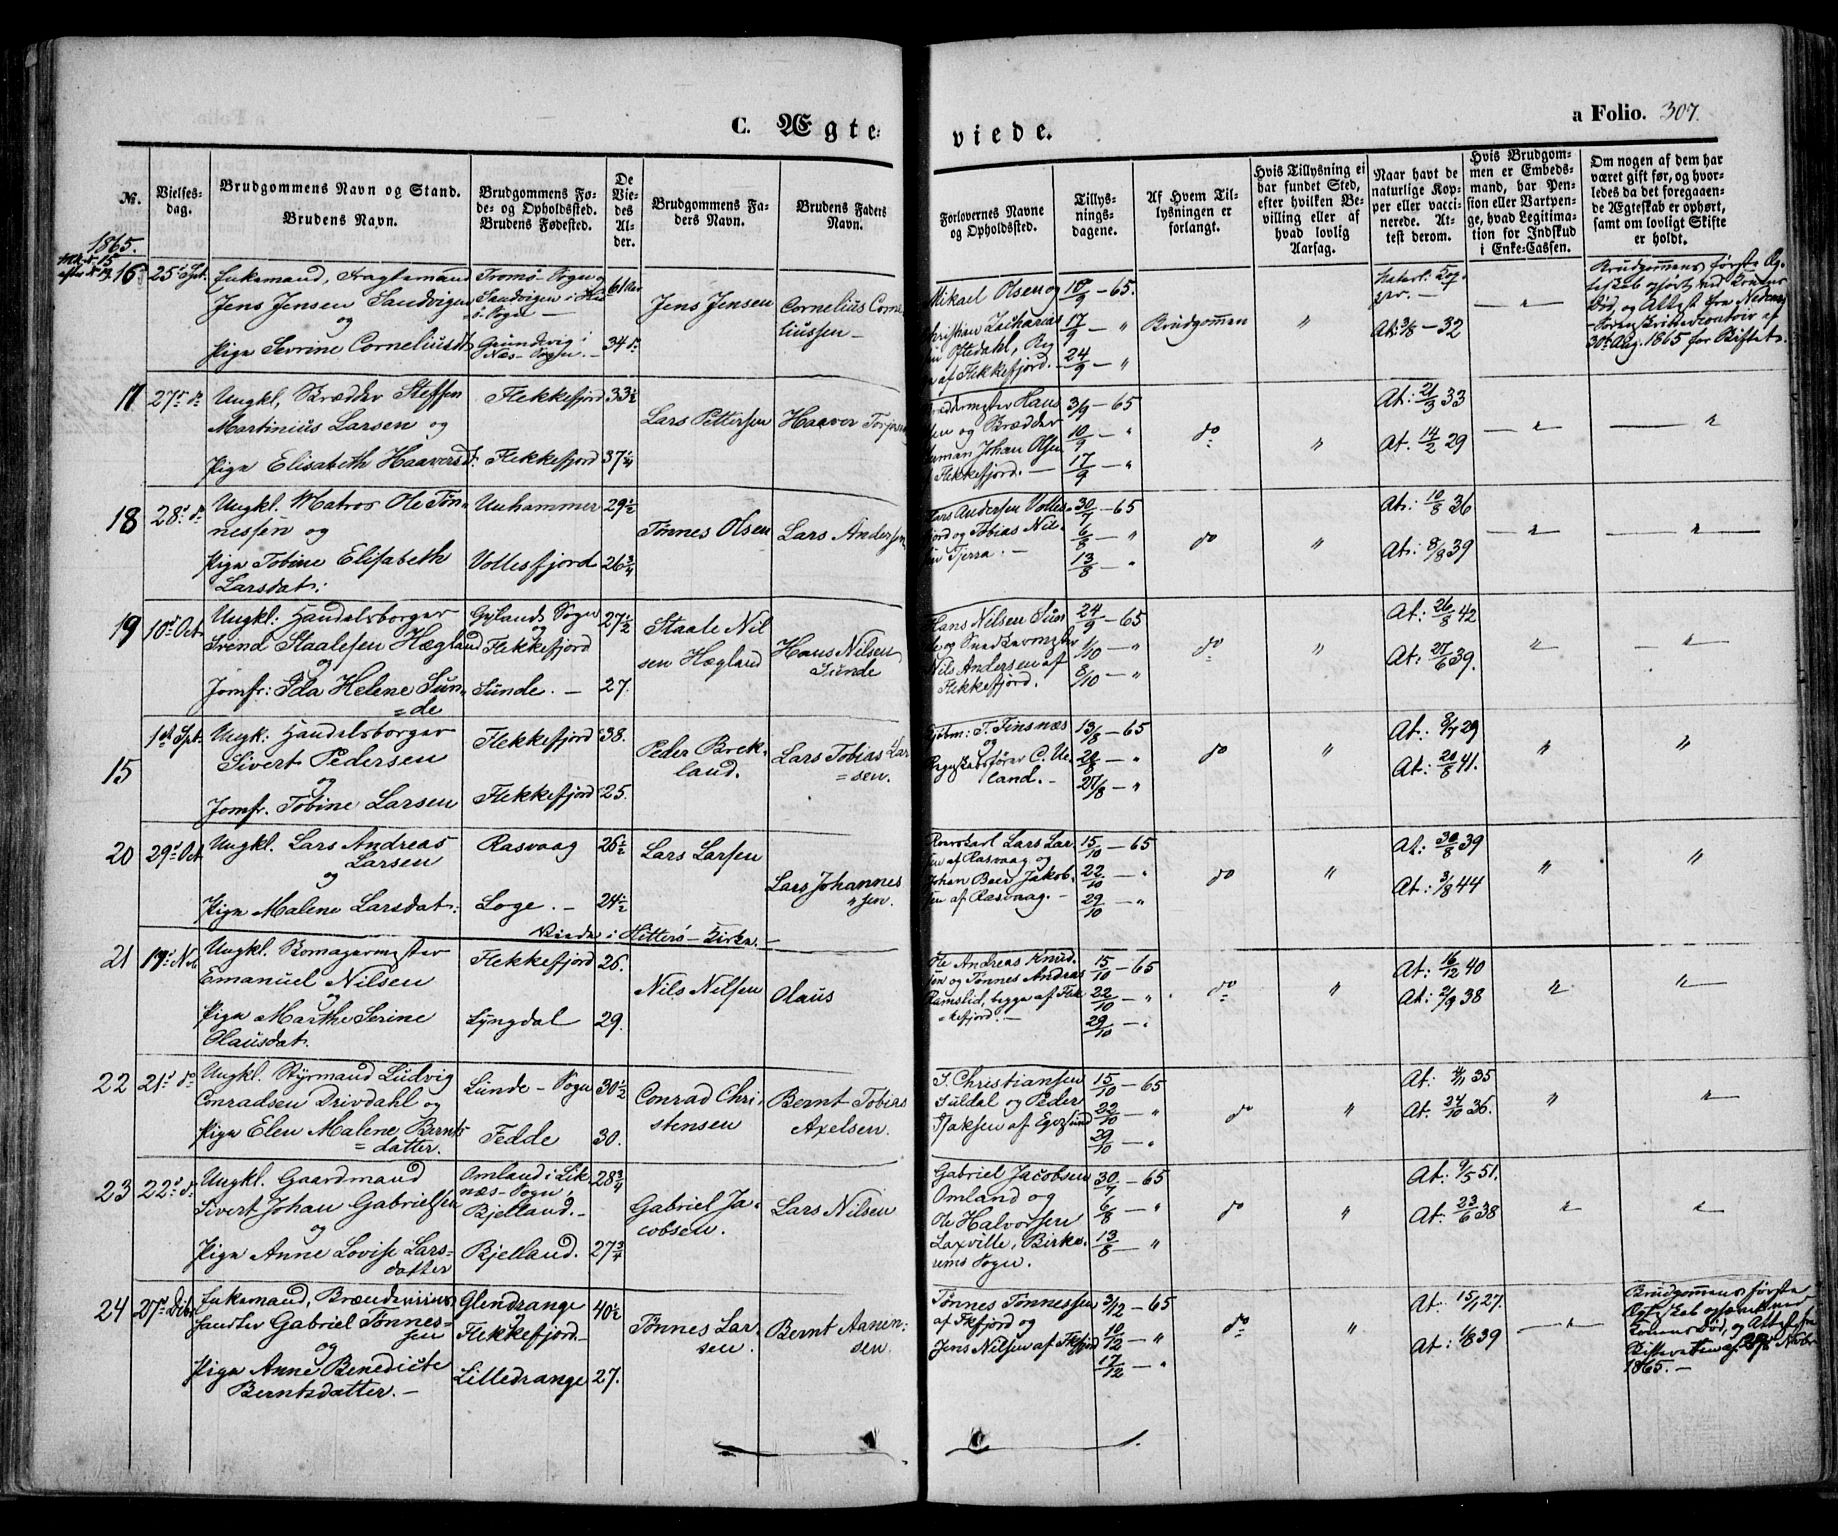 C. Ægte-
viede.
a Folio. 307.
No.
Vielses-
dag.
Brudgommens Navn og Stand.
Brudens Navn.
Brudgommens Fø-
de- og Opholdssted.
Brudens Fødested.
De
Vie-
des
Al-
der.
Brudgommens Fa-
ders Navn.
Brudens Faders
Navn.
Forlovernes Navne
og Opholdssted.
Tillys-
nings-
dagene.
Af Hvem Til-
lysningen er
forlangt.
Hvis Tillysning ei
har fundet Sted,
efter hvilken Be-
villing eller af
hvad lovlig
Aarsag.
Naar havt de
naturlige Kop-
per eller vacci-
nerede. At-
test derom.
Hvis Brudgom-
men er Embeds-
mand, har Pen-
sion eller Vartpen-
ge, hvad Legitima-
tion for Indskud
i Enke-Cassen.
Om nogen af dem har
været gift før, og hvor-
ledes da det foregaaen-
de Ægteskab er ophørt,
samt om lovligt Skifte
er holdt.
1865.
16 25de Spt.
Enkemand,
Jens Jensen Sandvigen
og
Pige Sevrine Corneliusdt
Tromø-Sogn og
Sandvigen i His-
ø-Sogn —
Grundvig i
Næs-Sogn. —
61 Aar
34 do
Jens Jensen
Cornelius Corne-
liussen —
Mikael Olsen og
Christian Zacharias-
sen Oftedahl, By-
af Flekkefjord.
10/9 — 65.
17/9 — "
24/9 — "
Brudgommen
"
Naturl. Kop-
per. —
At: 3/8 — 32
— " —
Brudgommens første Æg-
teskab ophørt ved Konens
Død, og Attest fra Nedenæs
Sorenskrivercontoir af
30te Aug. 1865 for Skiftet.
17 27de do
Ungkl. Bødker Steffen
Martinius Larsen og
Pige Elisabeth Haaversd.
Flekkefjord
Flekkefjord
33 1/2
37 1/4
Lars Pettersen
Haaver Torjersen
Bødkermester Hans
og Bødker
Johan Olsen
Flekkefjord. —
3/9 — 65
10/9 — "
17/9 — "
do
"
At: 21/3 33
At. 14/2 29
— " —
— "
18 28de do
Ungkl. Matros Ole Tøn-
nessen og
Pige Tobine Elisabeth
Larsdat:
Unhammer
Vollesfjord
29 1/2
26 3/4
Tønnes Olsen
Lars Andersen
Lars Andersen Volles-
fjord og Tobias Nil-
sen Tjerra. —
30/7 — 65
6/8 — "
13/8 — "
do
"
At: 10/8 36
At: 8/8 39
— " —
"
19 10de Oct.
Ungkl: Handelsborger
Svend Staalesen Hægland
og
Jomfr: Ida Helene Sun-
=de
Gylands Sogn
og
Flekkefjord
Sunde. —
27 1/2
27.
Staale Nil
sen Hægland
Hans Nilsen
Sunde
Hans Nilsen Sun
de og Snedkermester
Nils Andersen af
Flekkefjord.
24/9 — 65
1/10 — "
8/10 — "
do
"
At: 26/8 42
At: 27/6 39.
"
— " —
15
1ste Spt.
Ungk: Handelsborger
Sivert Pedersen
og
Jomfr. Tobine Larsen
Flekkefjord
Flekkefjord
38.
25.
Peder Brek-
land.
Lars Tobias Lar
=sen.
Kjøbm: T. Finsnæs
og
C. Ue-
land. —
13/8 — 65
20/8 — "
27/8 — "
do
"
At: 8/7 29
At: 20/8 41.
"
"
20 29de Oct
Ungkl. Lars Andreas
Larsen
og
Pige Malene Larsdat:
Rasvaag
Loge. —
26 1/2
24 1/2
Viede i Hitterø-Kirke. —
Lars Larsen
Lars Johannes
"sen.
Lars Lar-
sen af Rasvaag og
Johan Beer Jakob-
sen af Rasvaag. —
15/10 — 65
22/10 — "
29/10 — "
do
"
At: 30/8 39
At: 3/8 44
"
"
21
Ungkl. Skomagermester
Emanuel Nilsen
og
Pige Marthe Serine
Olausdat.
Flekkefjord
Lyngdal
26.
29.
Nils Nilsen
Olaus
Ole Andreas Knud-
sen og Tønnes Andreas
Ramslid, begge af Flek
"kefjord. —
15/10 — 65
22/10 — "
29/10 — "
do
"
At: 16/12 40
At: 2/9 38
"
"
22 21de do
Ungkl. Styrmand Ludvig
Conradsen Drivdahl og
Pige Elen Malene Bernts
=datter.
Lunde-Sogn
Fedde
30 1/2
30.
Conrad Chri-
stensen
Bernt Tobias
Axelsen.
Christiansen
Suldal og Peder
Isaksen af Egersund
15/10 — 65
22/10 — "
29/10 — "
do
"
At: 35
At. 24/10 36.
"
"
23 22de do
Ungkl. Gaardmand
Sivert Johan Gabrielsen
og
Pige Anne Lovise Lars-
datter
Omland i Lik-
næs-Sogn,
Bjelland. —
Bjelland.
28 3/4
27 3/4
Gabriel Ja-
cobsen.
Lars Nilsen
Gabriel Jacobsen
Omland og
Ole Halvorsen
Laxville, Birke-
rems Sogn.
30/7 — 65
6/8 — "
13/8 — "
do
"
At: 9/5 51.
At. 23/6 38
"
"
24 27de Dcbr
Enkemand, Brændeviins
handler Gabriel Tønnes-
sen
og
Pige Anne Benedicte
Berntsdatter. —
Glendrange
og
Flekkefjord. —
Lilledrange
40 1/2
27.
Tønnes Lar-
sen.
Bernt Aanen-
sen.
Tønnes Tønnessen
af Fkfjord og
Jens Nilsen af Fkfjord
3/12 — 65
10/12 — "
17/12 — "
do
"
At: 15/1 27.
At: 1/8 39
— " —
Brudgommens første
Ægteskab ophævet ved
Konens Død, og Attest fra
Skifteretten af Novbr
1865. —